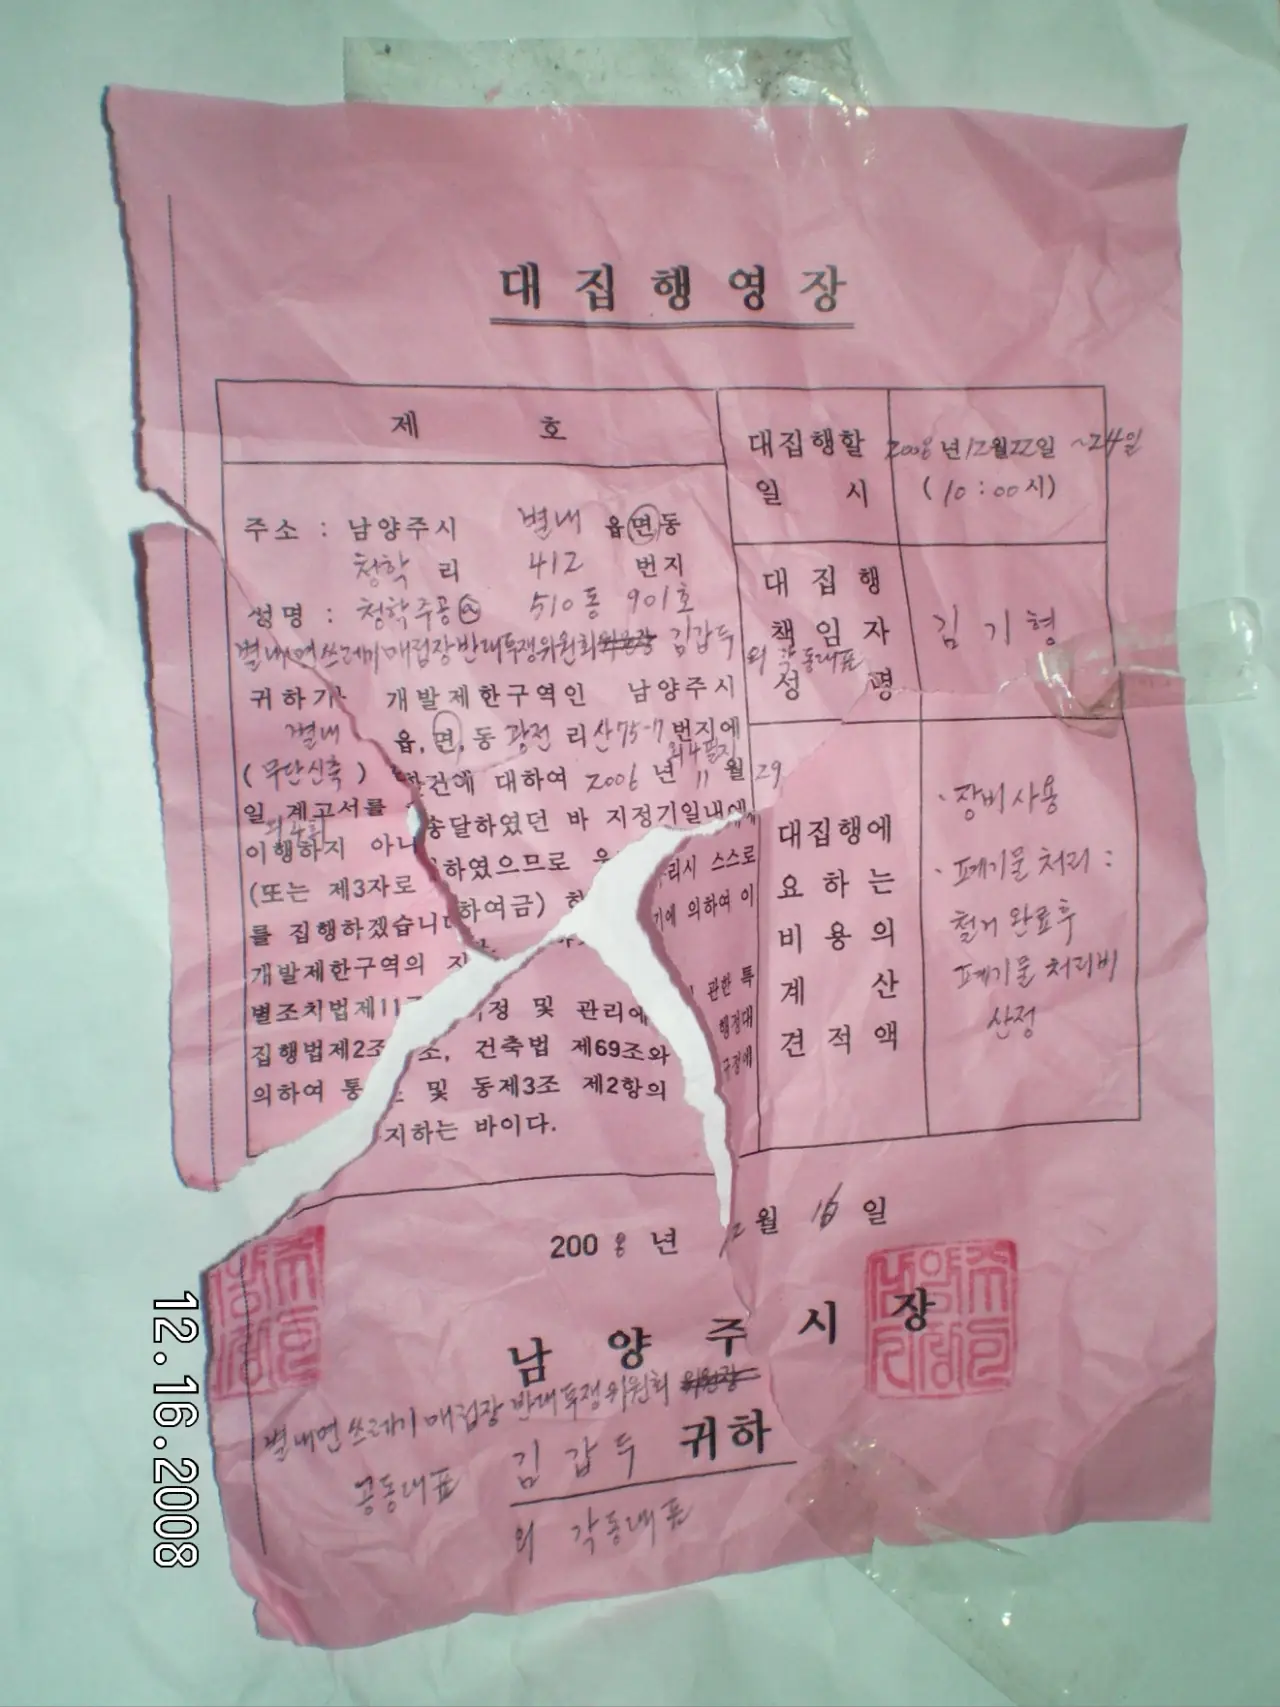 대집행영장
제 호
주소 : 남양주시 별내 읍면동
청학 리 412 번지
성명 : 청학주공 510동 901호
별내면쓰레기매립장반대투쟁위원회 김갑두
외 각동대표
귀하가 개발제한구역인 남양주시
별내 읍,면,동 광전 리 산75-7 번지에
외4필지
(무단신축) 건에 대하여 2006년 11월 29
일 계고서를 송달하였던 바 지정기일내에
이행하지 아니 하였으므로 리시 스스로
(또는 제3자로 하여금) 기에 의하여 이
를 집행하겠습니다
개발제한구역의 지 관한 특
별조치법제11조 정 및 관리에 행정대
집행법제2조 조, 건축법 제69조와 규정에
의하여 통 및 동제3조 제2항의
지하는 바이다.
대집행할 일 시
2008년12월22일 ~24일
(10:00시)
대집행 책임자 성명
김기형
대집행에 요하는 비용의 계산 견적액
·장비사용
·폐기물 처리 :
철거 완료후
폐기물 처리비
산정
2008년 12월 16일
남양주시장
별내면 쓰레기매립장 반대투쟁위원회
공동대표 김갑두 귀하
외 각동대표
12.16.2008